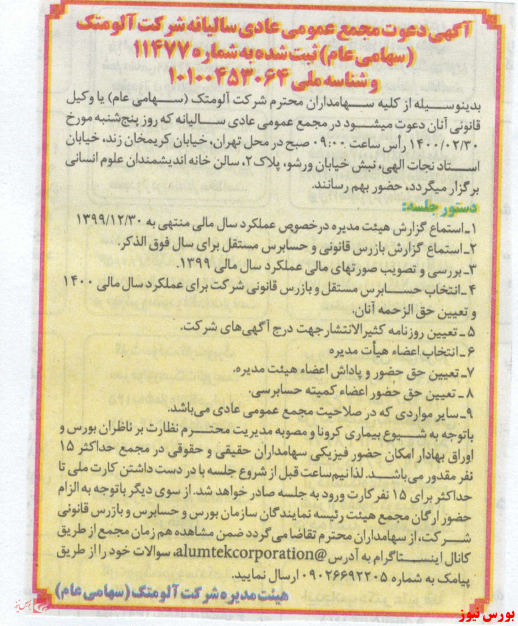 آگهی دعوت مجمع عمومی عادی سالیانه شرکت آلومتک
(سهامی عام) ثبت شده به شماره ۱۱۴۷۷
و شناسه ملی ۱۰۱۰۰۴۵۳۰۶۴
بدینوسیله از کلیه سهامداران محترم شرکت آلومتک (سهامی عام) یا وکیل
قانونی آنان دعوت میشود در مجمع عمومی عادی سالیانه که روز پنج‌شنبه مورخ
۱۴۰۰/۰۲/۳۰ رأس ساعت ۰۹:۰۰ صبح در محل تهران، خیابان کریمخان زند، خیابان
استاد نجات الهی، نبش خیابان ورشو، پلاک۲، سالن خانه اندیشمندان علوم انسانی
برگزار میگردد، حضور بهم رسانند.
دستور جلسه:
۱ـ استماع گزارش هیئت مدیره درخصوص عملکرد سال مالی منتهی به ۱۳۹۹/۱۲/۳۰
۲ـ استماع گزارش بازرس قانونی و حسابرس مستقل برای سال فوق الذکر.
۳ـ بررسی و تصویب صورتهای مالی عملکرد سال مالی ۱۳۹۹.
۴ـ انتخاب حسابرس مستقل و بازرس قانونی شرکت برای عملکرد سال مالی ۱۴۰۰
و تعیین حق الزحمه آنان.
۵ ـ تعیین روزنامه کثیرالانتشار جهت درج آگهی‌های شرکت.
۶ ـ انتخاب اعضاء هیأت مدیره
۷ـ تعیین حق حضور و پاداش اعضاء هیئت مدیره.
۸ ـ تعیین حق حضور اعضاء کمیته حسابرسی.
۹ـ سایر مواردی که در صلاحیت مجمع عمومی عادی می‌باشد.
باتوجه به شیوع بیماری کرونا و مصوبه مدیریت محترم نظارت بر ناظران بورس و
اوراق بهادار امکان حضور فیزیکی سهامداران حقیقی و حقوقی در مجمع حداکثر ۱۵
نفر مقدور می‌باشد. لذا نیم‌ساعت قبل از شروع جلسه با در دست داشتن کارت ملی تا
حداکثر برای ۱۵ نفر کارت ورود به جلسه صادر خواهد شد. از سوی دیگر باتوجه به الزام
حضور ارگان مجمع هیئت رئیسه نمایندگان سازمان بورس و حسابرس و بازرس قانونی
شرکت، از سهامداران محترم تقاضا می‌گردد ضمن مشاهده هم زمان مجمع از طریق
کانال اینستاگرام به آدرس @alumtekcorporation، سوالات خود را از طریق
پیامک به شماره ۰۹۰۲۶۶۹۲۲۰۵ ارسال نمایید.
هیئت مدیره شرکت آلومتک (سهامی عام)
بورس نیوز